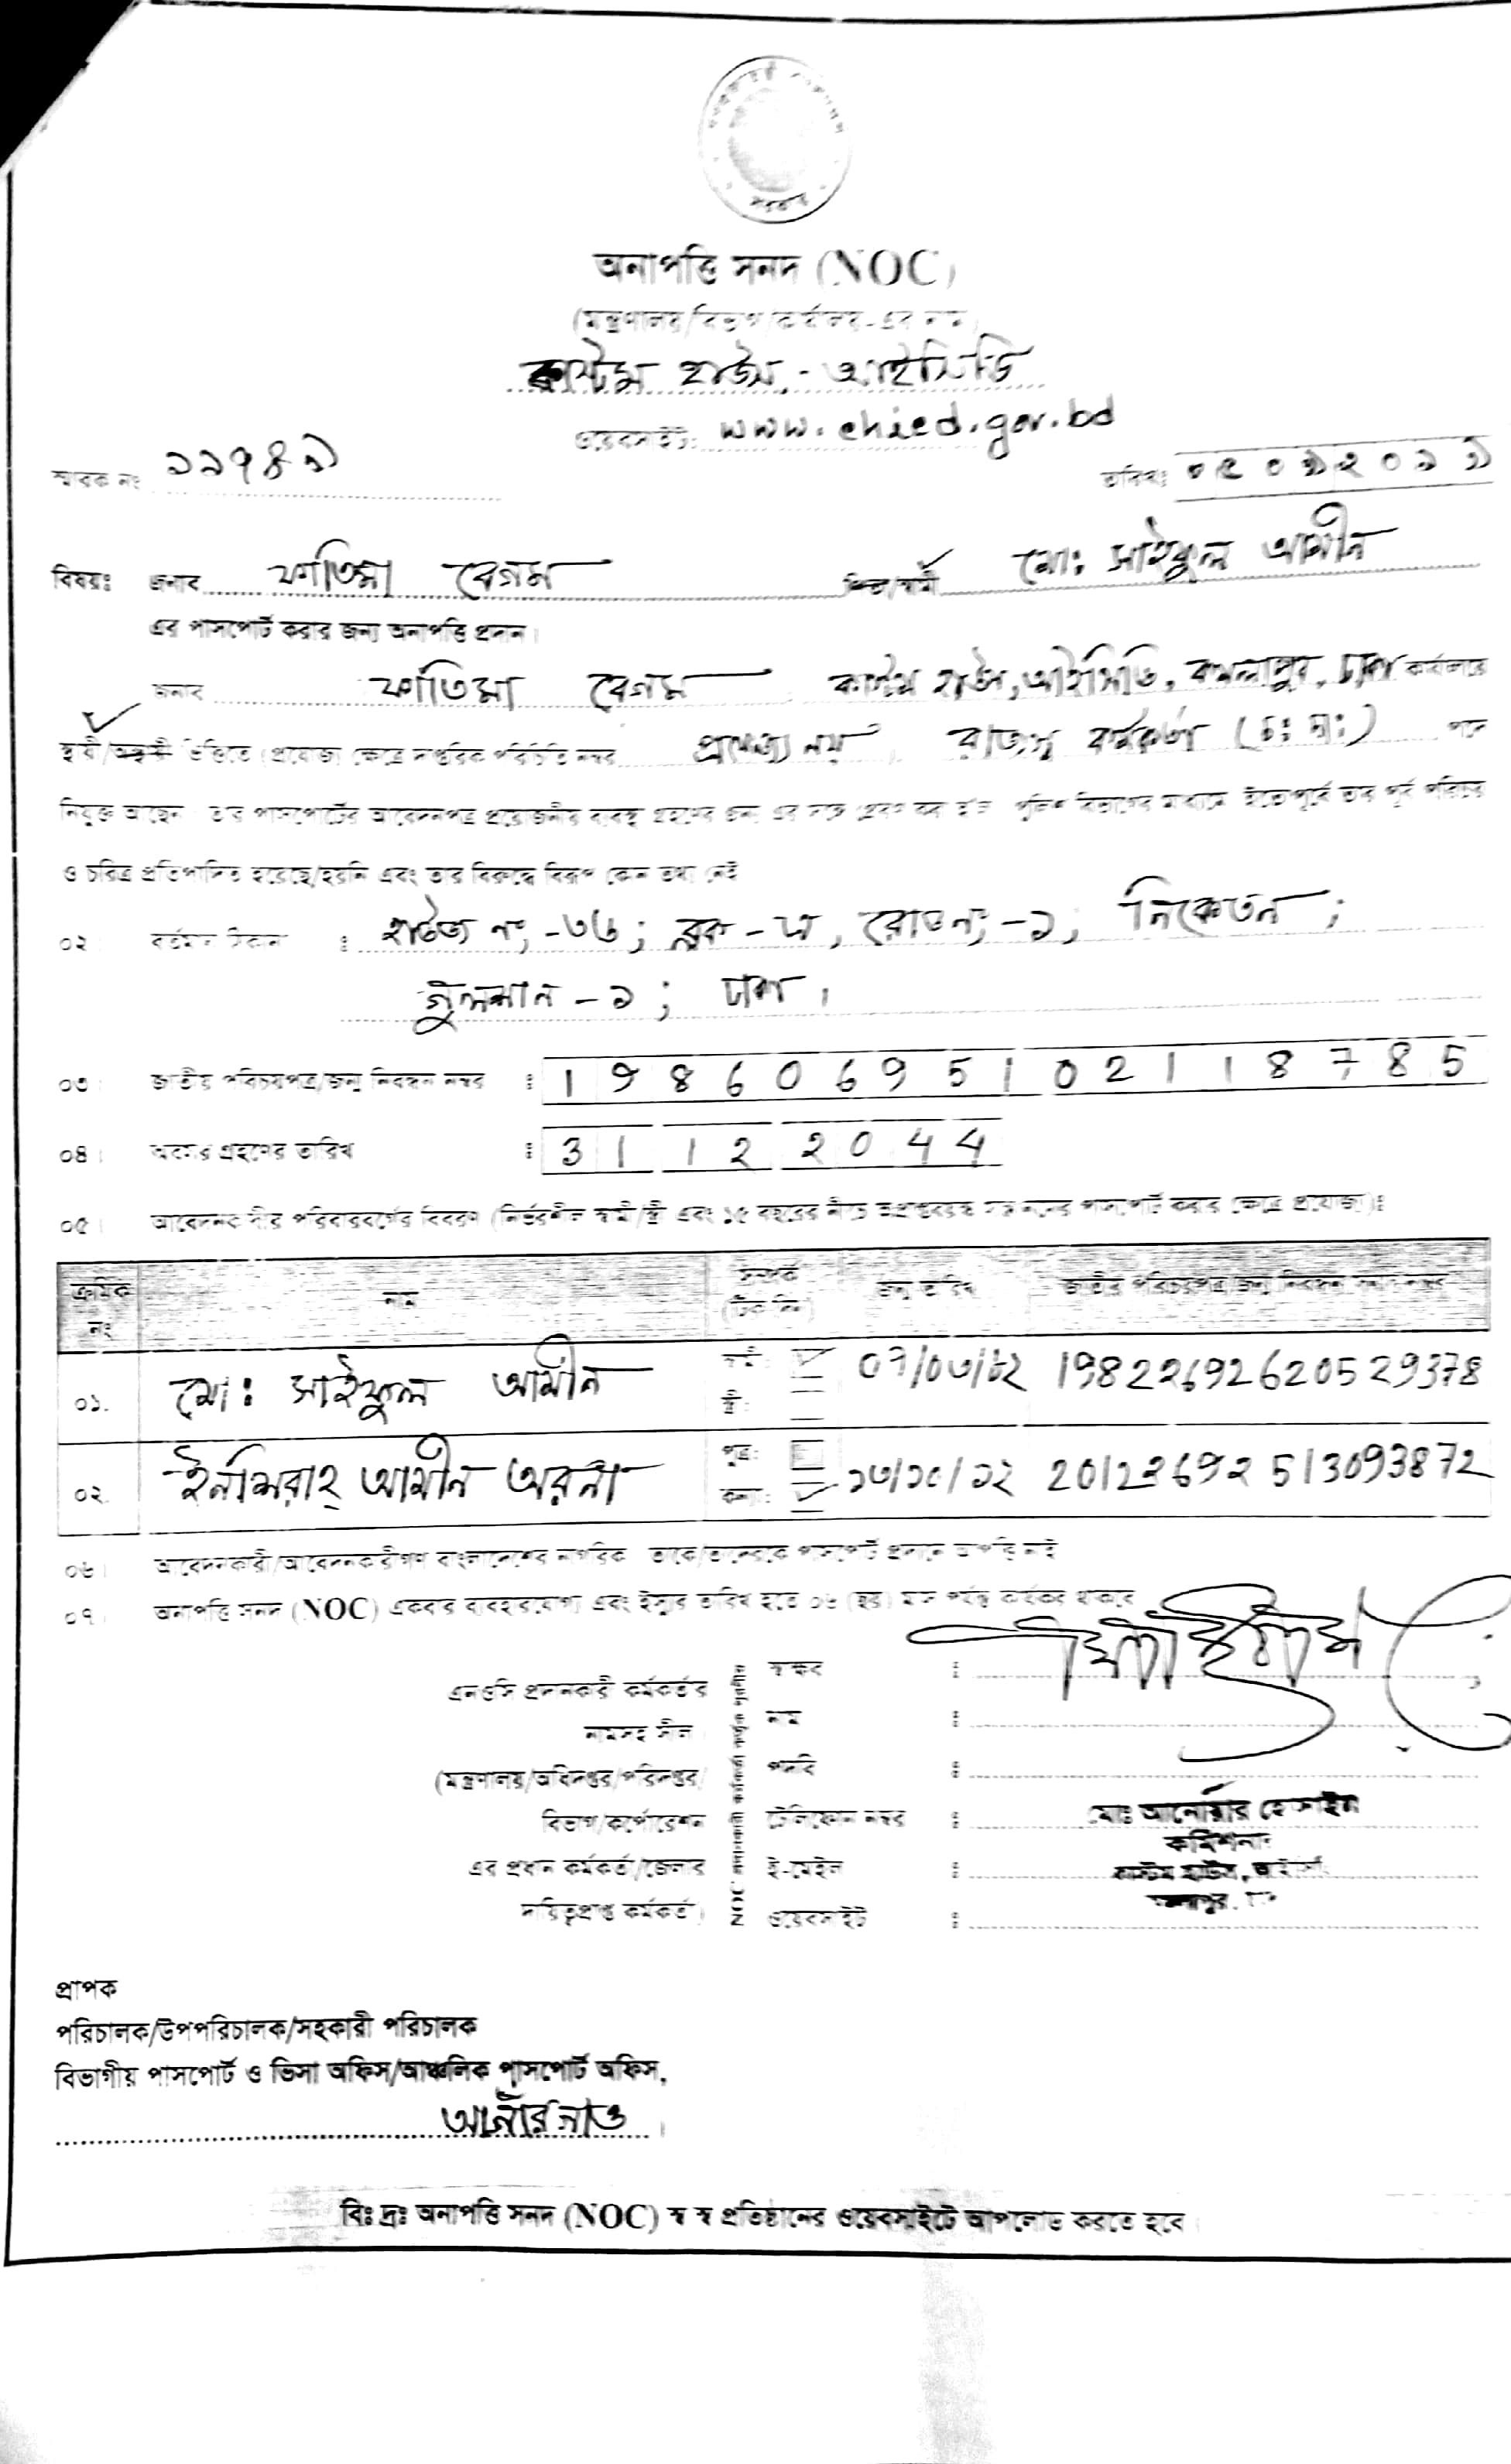 সরকার
অনাপত্তি সনদ (NOC)
(মন্ত্রণালয়/বিভাগ/কার্যালয়-এর নাম)
কাস্টম হাউস, - আইসিডি
ওয়েবসাইট: www.chicd.gov.bd
স্মারক নং ১১৭৪১
তারিখঃ
বিষয়ঃ জনাব ফাতিমা বেগম পিতা/স্বামী মোঃ সাইফুল আমীন
এর পাসপোর্ট করার জন্য অনাপত্তি প্রদান।
জনাব ফাতিমা বেগম কাস্টম হাউস, আইসিডি, কমলাপুর, ঢাকা কার্যালয়ে
স্থায়ী/অস্থায়ী ভিত্তিতে (প্রযোজ্য ক্ষেত্রে দাপ্তরিক পরিচিতি নম্বর প্রযোজ্য নয়) রাজস্ব কর্মকর্তা (চঃ দাঃ) পদে
নিযুক্ত আছেন তার পাসপোর্টের আবেদনপত্র প্রয়োজনীয় ব্যবস্থা গ্রহণের জন্য এর সঙ্গে প্রেরণ করা হ'ল পুলিশ বিভাগের মাধ্যমে ইতোপূর্বে তার পূর্ব পরিচয়
ও চরিত্র প্রতিপাদিত হয়েছে/হয়নি এবং তার বিরুদ্ধে বিরূপ কোন তথ্য নেই
০২ বর্তমান ঠিকানা ঃ হাউজ নং-৩৬; ব্লক-, রোড নং-১, নিকেতন;
গুলশান-১; ঢাকা।
০৩। জাতীয় পরিচয়পত্র/জন্ম নিবন্ধন নম্বর ঃ 19860695102118785
০৪। অবসর গ্রহণের তারিখ ঃ 31 12 2044
০৫। আবেদনকারীর পরিবারবর্গের বিবরণ (নির্ভরশীল স্বামী/স্ত্রী এবং ১৫ বছরের নীচে অপ্রাপ্তবয়স্ক সন্তানদের পাসপোর্ট করার ক্ষেত্রে প্রযোজ্য)ঃ
ক্রমিক নং নাম সম্পর্ক (টিক দিন) জন্ম তারিখ জাতীয় পরিচয়পত্র/জন্ম নিবন্ধন সনদ নম্বর
০১. মোঃ সাইফুল আমীন স্বামী: ✓ স্ত্রী: ০৭/০৩/৮২ 19822692620529378
০২. ইনশিরাহ্ আমীন অরনা পুত্র: কন্যা: ✓ ১৩/১০/১২ 20122692513093872
০৬। আবেদনকারী/আবেদনকারীগণ বাংলাদেশের নাগরিক তাকে/তাদেরকে পাসপোর্ট প্রদানে আপত্তি নাই
০৭। অনাপত্তি সনদ (NOC) একবার ব্যবহারযোগ্য এবং ইস্যুর তারিখ হতে ০৬ (ছয়) মাস পর্যন্ত কার্যকর থাকবে
এনওসি প্রদানকারী কর্মকর্তার
নামসহ সীল
(মন্ত্রণালয়/অধিদপ্তর/পরিদপ্তর/
বিভাগ/কর্পোরেশন
এর প্রধান কর্মকর্তা/জেলার
দায়িত্বপ্রাপ্ত কর্মকর্তা)
স্বাক্ষর ঃ
নাম ঃ
পদবি ঃ
টেলিফোন নম্বর ঃ
ই-মেইল ঃ
ওয়েবসাইট ঃ
মোঃ আনোয়ার হোসাইন
কমিশনার
কাস্টম হাউস, আইসিডি
কমলাপুর, ঢাকা
প্রাপক
পরিচালক/উপপরিচালক/সহকারী পরিচালক
বিভাগীয় পাসপোর্ট ও ভিসা অফিস/আঞ্চলিক পাসপোর্ট অফিস,
আগাঁরগাও।
বিঃ দ্রঃ অনাপত্তি সনদ (NOC) স্ব স্ব প্রতিষ্ঠানের ওয়েবসাইটে আপলোড করতে হবে